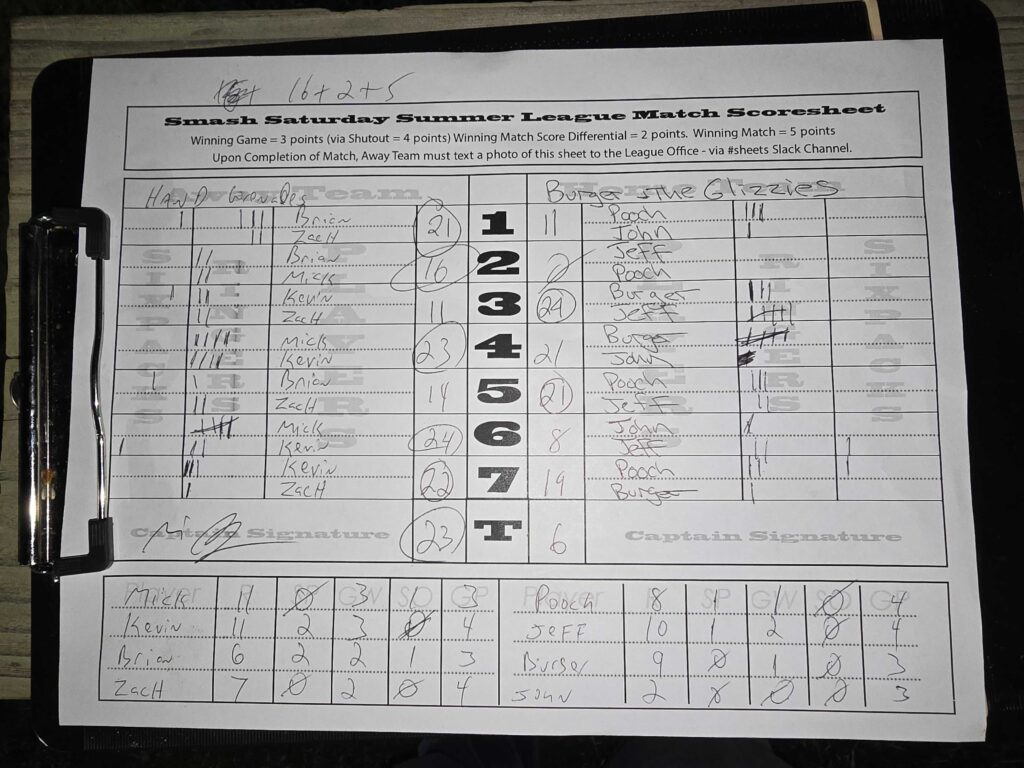 16+2+5
Smash Saturday Summer League Match Scoresheet
Winning Game = 3 points (via Shutout = 4 points) Winning Match Score Differential = 2 points. Winning Match = 5 points
Upon Completion of Match, Away Team must text a photo of this sheet to the League Office - via #sheets Slack Channel.
Away Team Home Team
HAND Grenades Burger & the Glizzies
SIXPACKS RINGERS PLAYERS PLAYERS RINGERS SIXPACKS
Brian 21 1 11 Pooch
ZacH John
Brian 16 2 2 Jeff
Mick Pooch
Kevin 11 3 24 Burger
ZacH Jeff
Mick 23 4 21 Burger
Kevin John
Brian 14 5 21 Pooch
ZacH Jeff
Mick 24 6 8 John
Kevin Jeff
Kevin 22 7 19 Pooch
ZacH Burger
23 T 6
Captain Signature Captain Signature
Player R SP GW SO GP Player R SP GW SO GP
Mick 11 0 3 1 3 Pooch 8 1 1 0 4
Kevin 11 2 3 0 4 JEFF 10 1 2 0 4
Brian 6 2 2 1 3 Burger 9 0 1 0 3
ZacH 7 0 2 0 4 JOHN 2 0 0 0 3